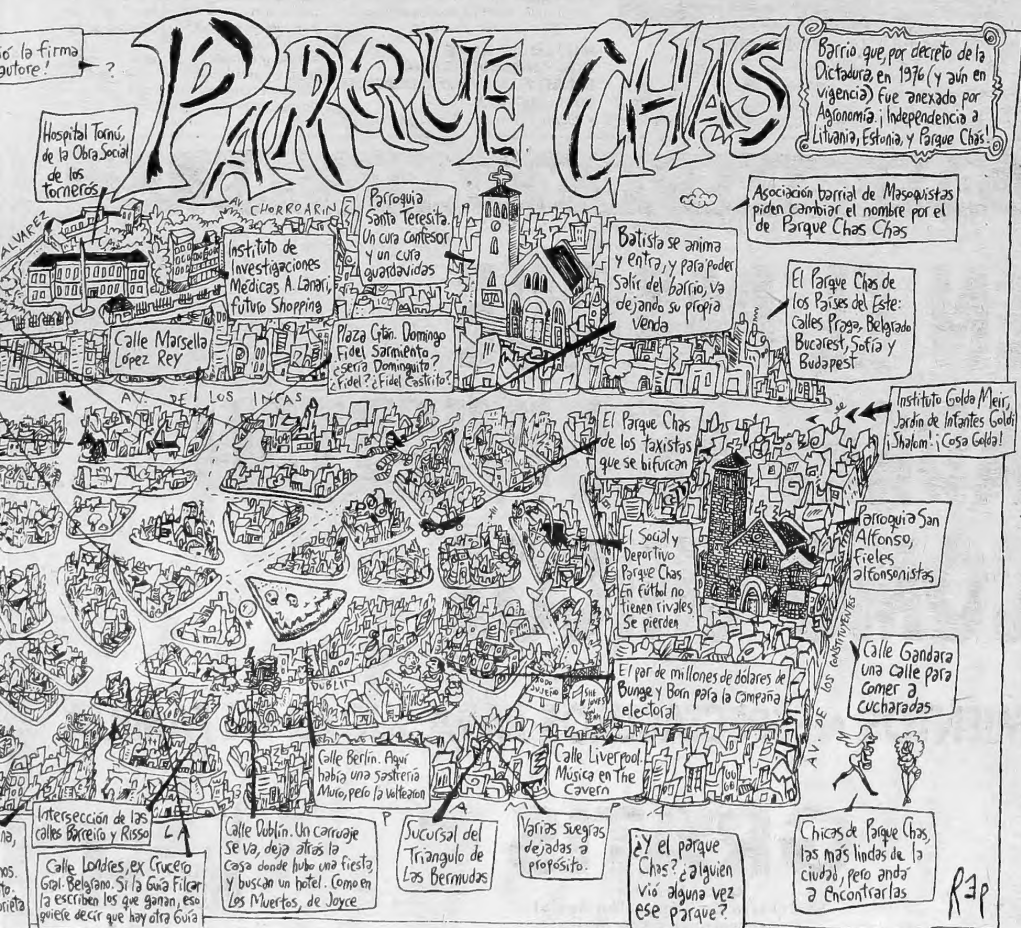 ió la firma
autore!
?
PARQUE CHAS
Barrio que, por decreto de la
Dictadura, en 1976 (y aún en
vigencia) fue anexado por
Agronomía. ¡Independencia a
Lituania, Estonia, y Parque Chas!
Hospital Tornú,
de la Obra Social
de los
torneros
ALVAREZ
AV. CHORROARIN
Instituto de
Investigaciones
Médicas A. Lanari,
futuro Shopping
Parroquia
Santa Teresita.
Un cura confesor
y un cura
guardavidas
Asociación barrial de Masoquistas
piden cambiar el nombre por el
de Parque Chas Chas
Batista se anima
y entra, y para poder
salir del barrio, va
dejando su propia
venda
El Parque Chas de
los Países del Este:
calles Praga, Belgrado
Bucarest, Sofía y
Budapest
Calle Marsella
López Rey
Plaza Cptán. Domingo
Fidel Sarmiento
¿sería Dominguito?
¿Fidel? ¿Fidel Castrito?
AV. DE LOS INCAS
Instituto Golda Meir,
Jardín de Infantes Goldi
¡Shalom! ¡Cosa Golda!
El Parque Chas
de los taxistas
que se bifurcan
El Social y
Deportivo
Parque Chas
En fútbol no
tienen rivales
Se pierden
Parroquia San
Alfonso,
fieles
alfonsonistas
AV. DE LOS CONSTITUYENTES
Calle Gandara
una calle para
comer a
cucharadas
El par de millones de dólares de
Bunge y Born para la campaña
electoral
DUBLIN
TODO
JUJEÑO
SHE
LOVES
Calle Berlín. Aquí
había una sastrería
Muro, pero la voltearon
Calle Liverpool.
Música en The
Cavern
LA P A M P A
Intersección de las
calles Barreiro y Risso
Calle Londres, ex Crucero
Gral. Belgrano. Si la Guía Filcar
la escriben los que ganan, eso
quiere decir que hay otra Guía
Calle Dublín. Un carruaje
se va, deja atrás la
casa donde hubo una fiesta,
y buscan un hotel. Como en
Los Muertos, de Joyce
Sucursal del
Triangulo de
Las Bermudas
Varias suegras
dejadas a
propósito.
¿Y el parque
Chas? ¿alguien
vió alguna vez
ese parque?
Chicas de Parque Chas,
las más lindas de la
ciudad, pero andá
a encontrarlas
na,
nos.
to.
orieta
REP